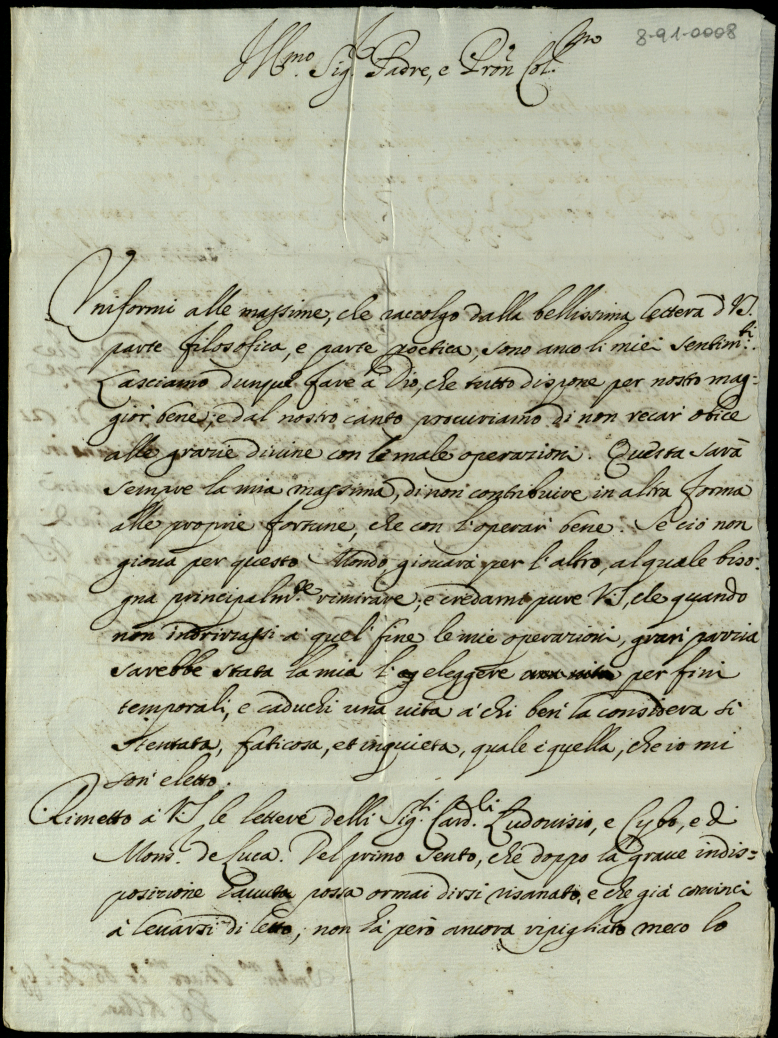 8-91-0008
Ill.mo Sig.r Padre, e Pron Col.mo
Uniformi alle massime, che raccolgo dalla bellissima lettera d V.S.
parte filosofica, e parte poetica, sono anco li miei sentim.ti.
Lasciamo dunque fare à Dio, che tutto dispone per nostro mag=
gior bene, e dal nostro canto procuriamo di non recar obice
alle grazie divine con le male operazioni. Questa sarà
sempre la mia massima, di non contribuire in altra forma
alle proprie fortune, che con l'operar bene. Se ciò non
gioua per questo Mondo, giouarà per l'altro, al quale biso=
gna principalm.te rimirare, e credami pure V.S, che quando
non indrizzassi à quel fine le mie operazioni, gran pazzia
sarebbe stata la mia l' eleggere per fini
temporali, e caduchi una uita à chi ben la considera sì
stentata, faticosa, et inquieta, quale è quella, che io mi
son eletto.
Rimetto à V.S le lettere delli Sig.ri Card.li Ludouisio, e Cybo, e di
Mons.r de Luca. Del primo sento, che doppo la graue indis=
posizione hauuta possa ormai dirsi risanato, e che già cominci
à leuarsi di letto, non hà però ancora ripigliato meco lo